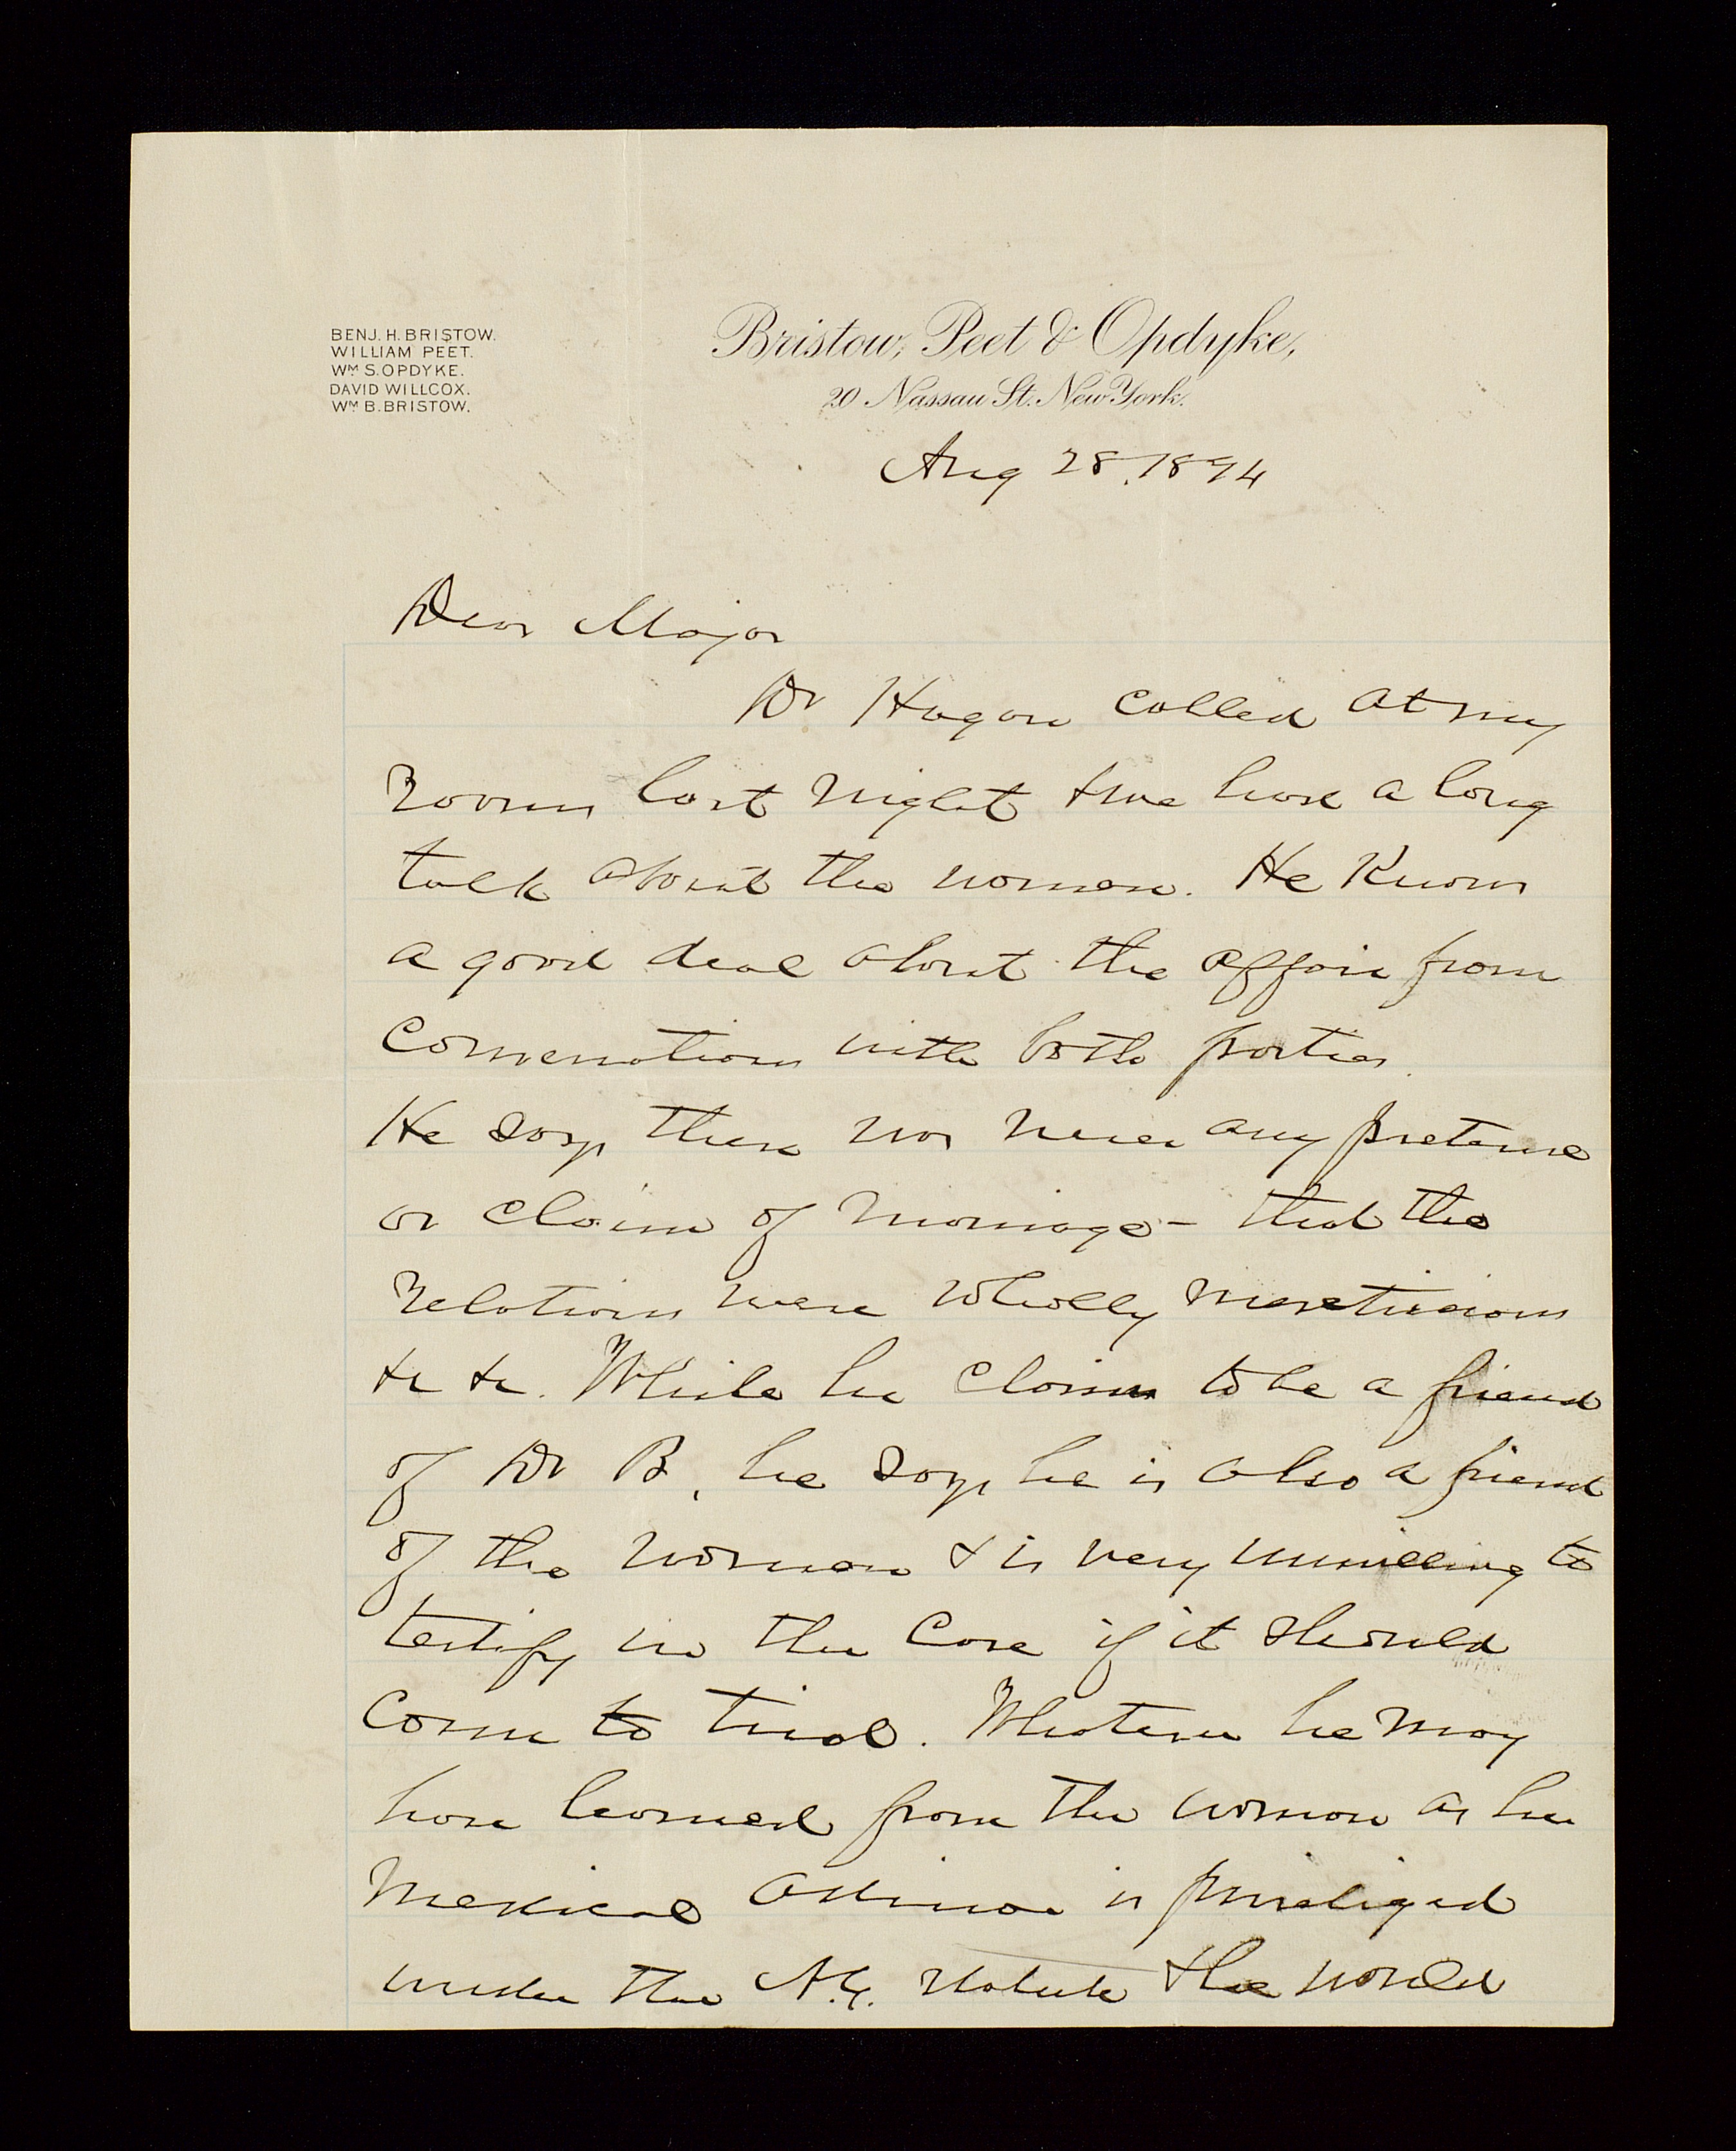 BENJ. H. BRISTOW.
WILLIAM PEET.
WM S. OPDYKE.
DAVID WILLCOX.
WM B. BRISTOW.
Bristow, Peet & Opdyke,
20 Nassau St. New York.
Aug 28, 1894
Dear Major
Dr Hagan called at my
rooms last night & we had a long
talk about the woman. He knows
a good deal about the affair from
conversations with both parties.
He says there was never any pretense
or claim of marriage - that the
relations were wholly meretricious
&c &c. While he claims to be a friend
of Dr B, he says he is also a friend
of the woman & is very unwilling to
testify in the case if it should
come to trial. Whatever he may
have learned from the woman as her
medical adviser is priviliged
under the N.Y. statute & he would